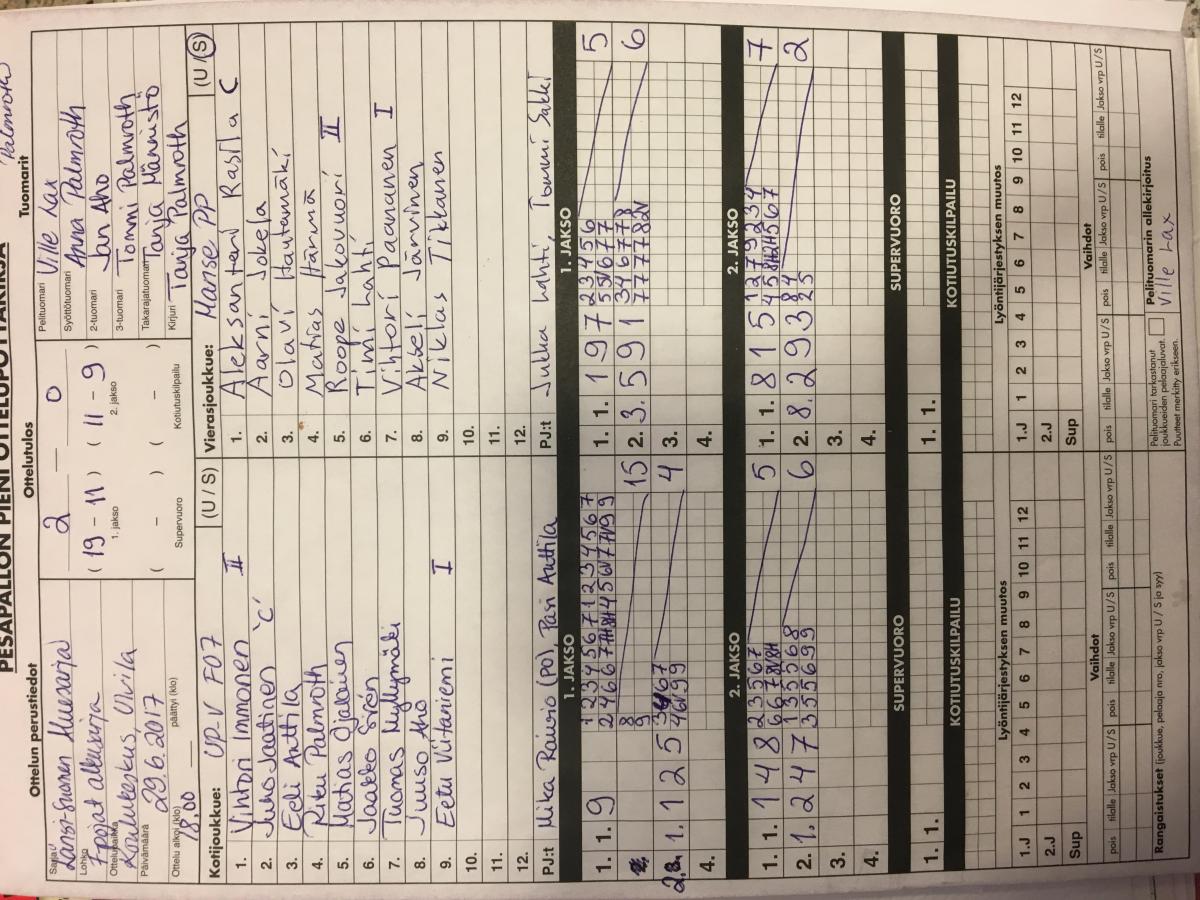 PESÄPALLON PIENI OTTELUPÖYTÄKIRJA
Palmroth
Ottelun perustiedot
Sarja
Länsi-Suomen Aluesarja
Lohko
F-pojat alkusarja
Ottelupaikka
Koulukeskus, Ulvila
Päivämäärä
29.6.2017
Ottelu alkoi (klo)
18.00
päättyi (klo)
Ottelutulos
2 0
( 19 - 11 ) ( 11 - 9 )
1. jakso 2. jakso
( - ) ( - )
Supervuoro Kotiutuskilpailu
Tuomarit
Pelituomari Ville Lax
Syöttötuomari Anna Palmroth
2-tuomari Jan Aho
3-tuomari Tommi Palmroth
Takarajatuomari Tanja Männistö
Kirjuri Tanja Palmroth
Kotijoukkue: UP-V F07 (U / S)
1. Vihtori Immonen II
2. Juho Jaatinen 'C'
3. Eeli Anttila
4. Riku Palmroth
5. Matias Ojalainen
6. Jaakko Sirén
7. Tuomas Myllymäki
8. Juuso Aho
9. Eetu Viitaniemi I
10.
11.
12.
PJ:t Mika Raivio (PO), Pasi Anttila
Vierasjoukkue: Manse PP (U / S)
1. Aleksanteri Rasila C
2. Aarni Jokela
3. Olavi Hautamäki
4. Matias Härmä
5. Roope Jakovuori II
6. Timi Lahti
7. Vihtori Paananen I
8. Akseli Järvinen
9. Niklas Tikkanen
10.
11.
12.
PJ:t Jukka Lahti, Tommi Sakki
1. JAKSO
1. 1. 9
15
1. 1 2 5
4
4.
1. JAKSO
1. 1. 1 9 7 2 3 4 5 6 5
2. 3. 5 9 1 3 4 6 7 7 8 6
3.
4.
2. JAKSO
1. 1. 1 4 8 2 3 5 6 7 5
2. 1. 2 4 7 1 3 5 5 6 8 6
3 5 5 6 9 9
3.
4.
2. JAKSO
1. 1. 8 1 5 1 2 7 9 2 3 4 7
2. 8. 2 9 3 8 4 2
2 5
3.
4.
SUPERVUORO
1. 1.
SUPERVUORO
1. 1.
KOTIUTUSKILPAILU
KOTIUTUSKILPAILU
Lyöntijärjestyksen muutos
1.J 1 2 3 4 5 6 7 8 9 10 11 12
2.J
Sup
Lyöntijärjestyksen muutos
1.J 1 2 3 4 5 6 7 8 9 10 11 12
2.J
Sup
Vaihdot
pois tilalle Jakso vrp U/S pois tilalle Jakso vrp U/S pois tilalle Jakso vrp U/S
Vaihdot
pois tilalle Jakso vrp U/S pois tilalle Jakso vrp U/S pois tilalle Jakso vrp U/S
Rangaistukset (joukkue, pelaaja nro, jakso vrp U / S ja syy)
Pelituomari tarkastanut
joukkueiden pelaajaluvat.
Puutteet merkitty erikseen.
Pelituomarin allekirjoitus
Ville Lax